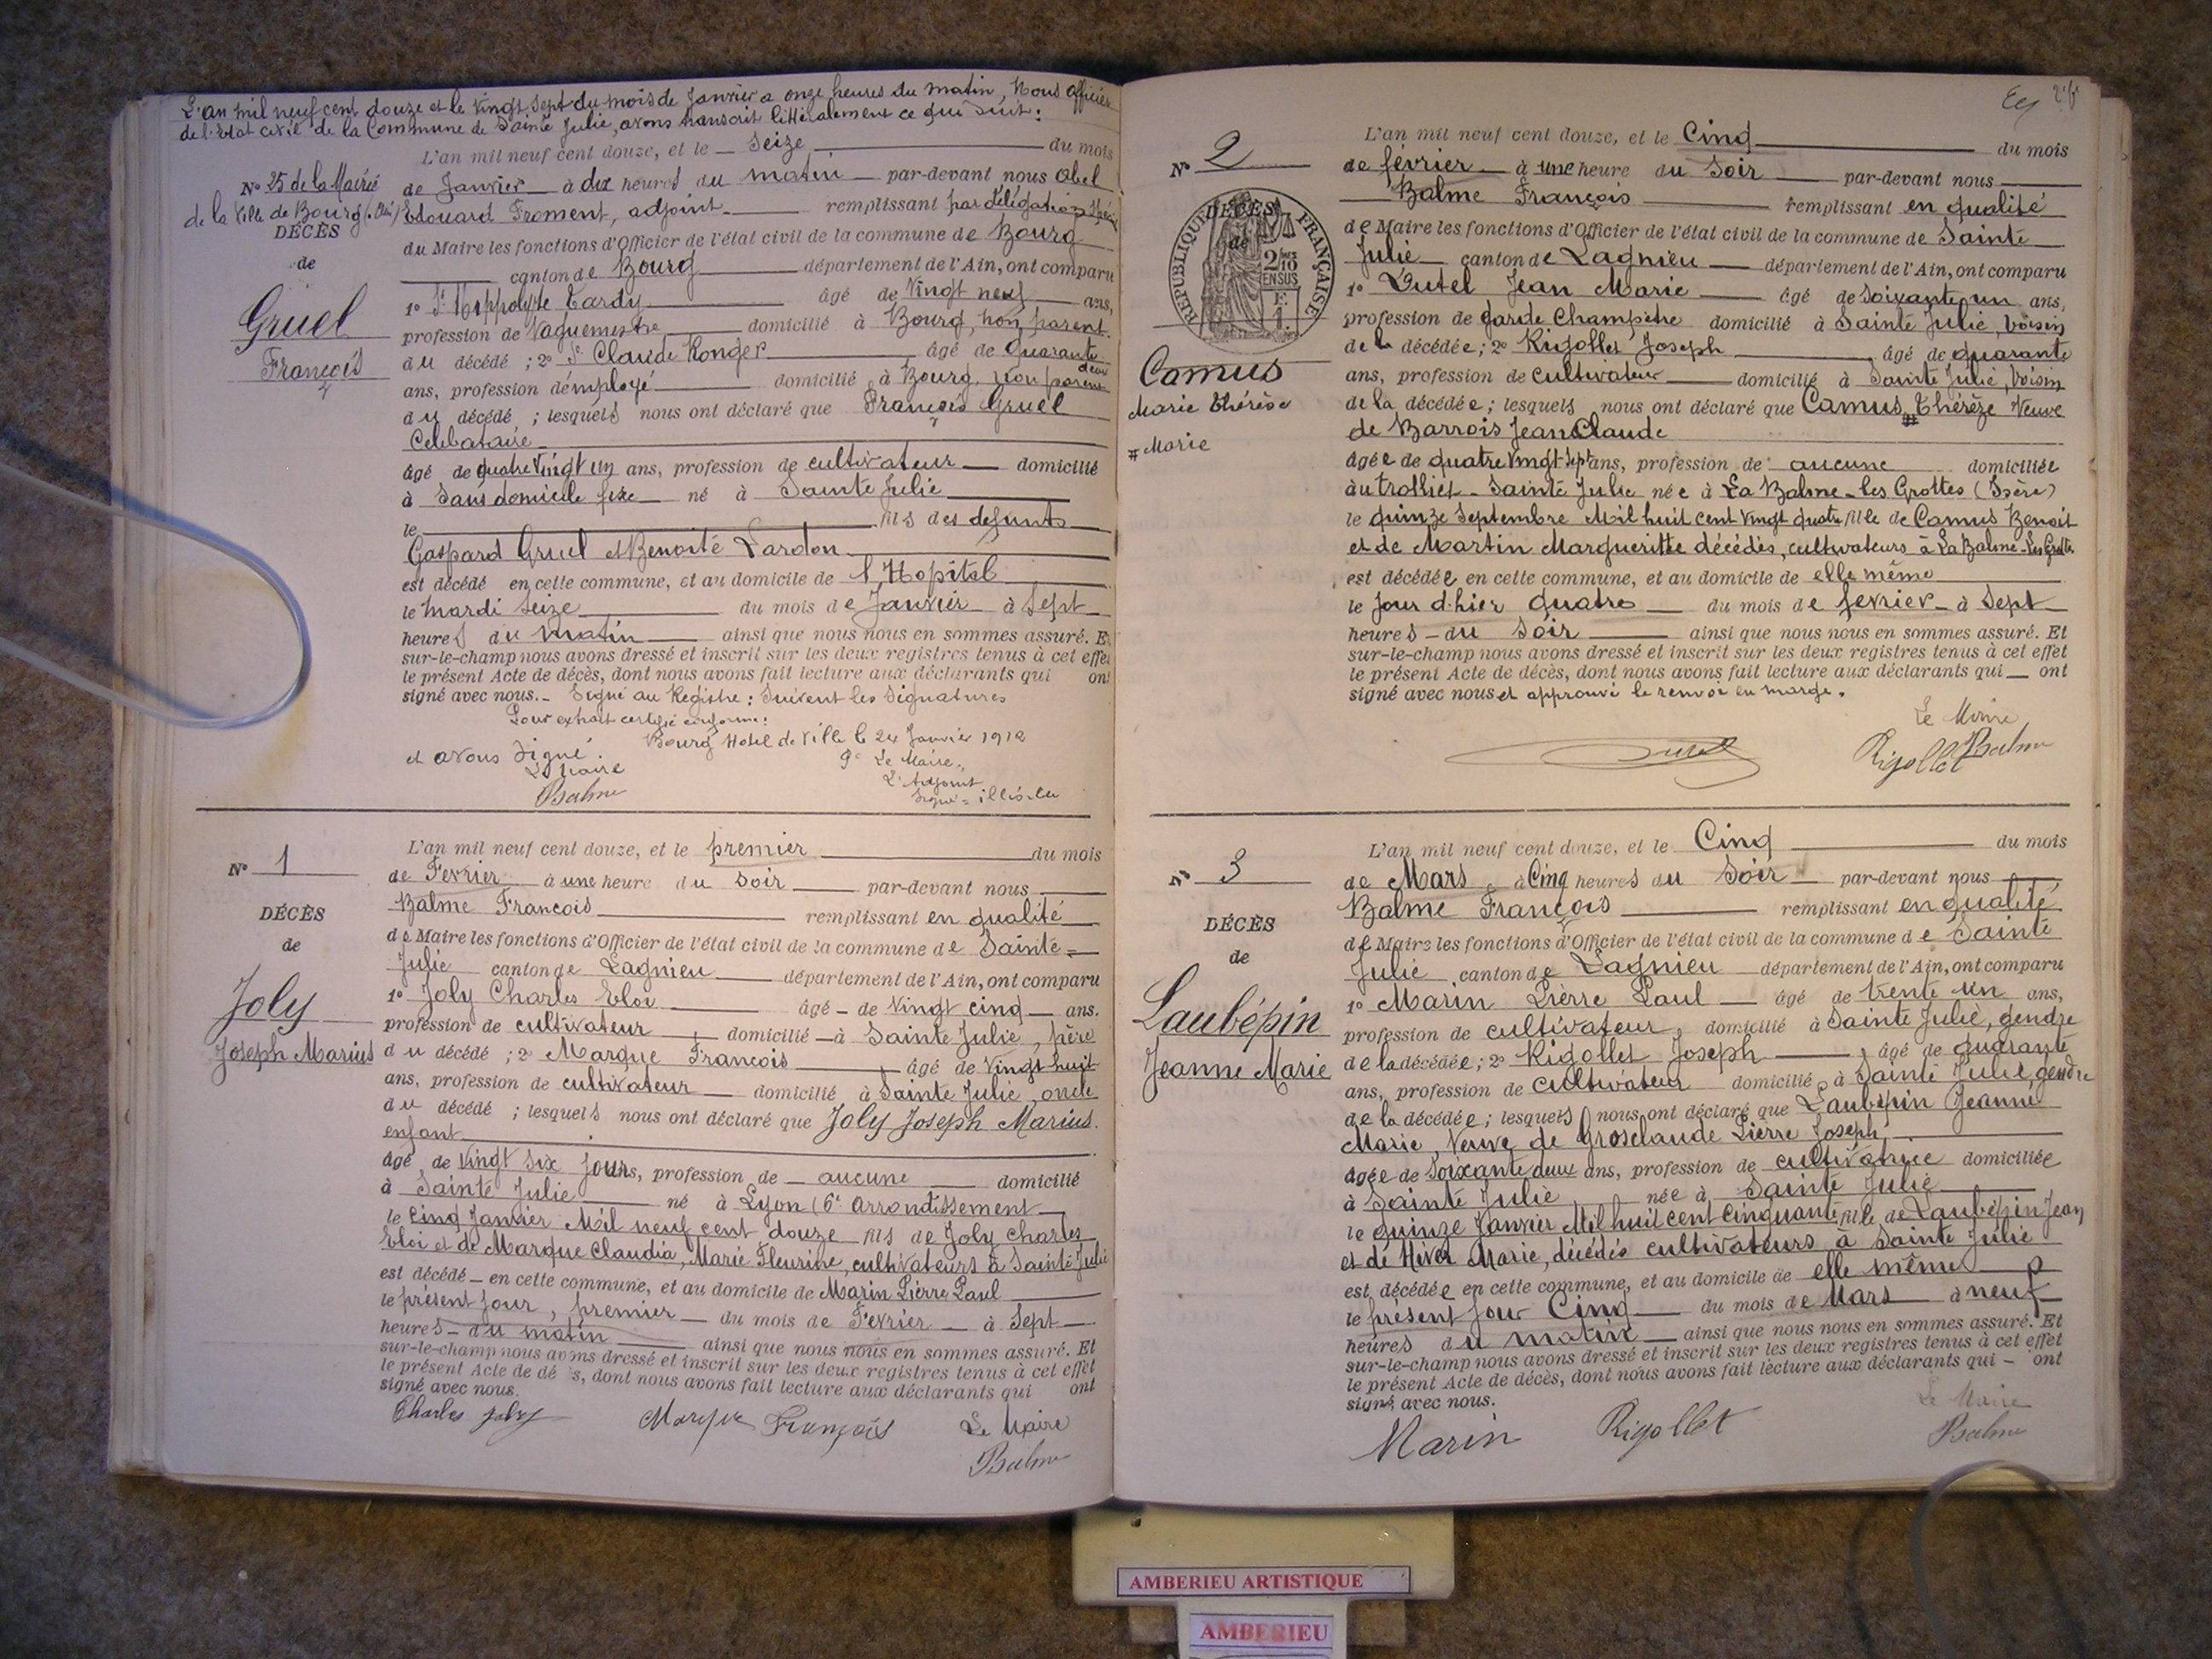 L'an mil neuf cent douze et le Vingt Sept du mois de Janvier a onze heures du matin, Nous officier
de l'Etat civil de la Commune de Sainte Julie, avons transcrit littéralement ce qui suit:
L'an mil neuf cent douze, et le Seize du mois
N° 25 de la Mairie
de la Ville de Bourg (Ain)
DÉCÈS
de
Gruel
François
de Janvier à dix heures du matin par-devant nous Abel
Edouard Froment, adjoint remplissant par délégation
du Maire les fonctions d'Officier de l'état civil de la commune de Bourg
canton de Bourg département de l'Ain, ont comparu
1° Sr Hippolyte Tardy âgé de Vingt neuf ans,
profession de Vaguemestre domicilié à Bourg, non parent
du décédé ; 2° Sr Claude Ronger âgé de quarante deux
ans, profession d'employé domicilié à Bourg, non parent
du décédé ; lesquels nous ont déclaré que François Gruel
Celibataire
âgé de quatre Vingt un ans, profession de cultivateur domicilié
à Sans domicile fixe né à Sainte Julie
le fils des defunts
Gaspard Gruel et Benoite Lardon
est décédé en cette commune, et au domicile de l'Hopital
le mardi Seize du mois de Janvier à Sept
heures du matin ainsi que nous nous en sommes assuré. Et
sur-le-champ nous avons dressé et inscrit sur les deux registres tenus à cet effet
le présent Acte de décès, dont nous avons fait lecture aux déclarants qui ont
signé avec nous. Signé au Registre : Suivent les Signatures
Pour extrait certifié conforme:
Bourg Hotel de Ville le 24 Janvier 1912
et avons signé.
Le Maire
Balme
Pr Le Maire,
L'Adjoint
Signé = illisible
N° 1
DÉCÈS
de
Joly
Joseph Marius
L'an mil neuf cent douze, et le premier du mois
de Fevrier à une heure du Soir par-devant nous
Balme Francois remplissant en qualité
de Maire les fonctions d'Officier de l'état civil de la commune de Sainte-
Julie canton de Lagnieu département de l'Ain, ont comparu
1° Joly Charles Eloi âgé de Vingt cinq ans.
profession de cultivateur domicilié à Sainte Julie, père
du décédé ; 2° Marque Francois âgé de Vingt huit
ans, profession de cultivateur domicilié à Sainte Julie, oncle
du décédé ; lesquels nous ont déclaré que Joly Joseph Marius.
enfant
âgé de Vingt Six jours, profession de aucune domicilié
à Sainte Julie né à Lyon (6e arrondissement
le Cinq Janvier Mil neuf cent douze fils de Joly Charles
Eloi et de Marque Claudia, Marie Fleurine, cultivateurs à Sainte Julie
est décédé en cette commune, et au domicile de Marin Pierre Paul
le présent jour, premier du mois de Fevrier à Sept
heures du matin ainsi que nous nous en sommes assuré. Et
sur-le-champ nous avons dressé et inscrit sur les deux registres tenus à cet effet
le présent Acte de dé s, dont nous avons fait lecture aux déclarants qui ont
signé avec nous.
Charles Joly
Marque François
Le Maire
Balme
N° 2
DÉCÈS
de
RÉPUBLIQUE FRANÇAISE
2/10 EN SUS
Camus
Marie Thérèse
# Marie
L'an mil neuf cent douze, et le Cinq du mois
de février à une heure du Soir par-devant nous
Balme François remplissant en qualité
de Maire les fonctions d'Officier de l'état civil de la commune de Sainte
Julie canton de Lagnieu département de l'Ain, ont comparu
1° Dutel Jean Marie âgé de Soixante un ans,
profession de garde Champêtre domicilié à Sainte Julie, voisin
de la décédée ; 2° Rigollet Joseph âgé de quarante
ans, profession de cultivateur domicilié à Sainte Julie, Voisin
de la décédée ; lesquels nous ont déclaré que Camus # Thérèze Veuve
de Barrois Jean Claude
âgée de quatre Vingt Sept ans, profession de aucune domiciliée
au trolliet - Sainte Julie née à La Balme-les Grottes (Isère)
le quinze Septembre Mil huit cent Vingt quatre fille de Camus Benoit
et de Martin Margueritte décédés, cultivateurs à La Balme-les Grottes
est décédée en cette commune, et au domicile de elle même
le jour d'hier quatre du mois de fevrier à Sept
heures du Soir ainsi que nous nous en sommes assuré. Et
sur-le-champ nous avons dressé et inscrit sur les deux registres tenus à cet effet
le présent Acte de décès, dont nous avons fait lecture aux déclarants qui ont
signé avec nous et approuvé le renvoi en marge.
Le Maire
Dutel
Rigollet
Balme
N° 3
DÉCÈS
de
Laubépin
Jeanne Marie
L'an mil neuf cent douze, et le Cinq du mois
de Mars à Cinq heures du Soir par-devant nous
Balme François remplissant en qualité
de Maire les fonctions d'Officier de l'état civil de la commune de Sainte
Julie canton de Lagnieu département de l'Ain, ont comparu
1° Marin Pierre Paul âgé de trente un ans,
profession de cultivateur, domicilié à Sainte Julie, gendre
de la décédée ; 2° Rigollet Joseph âgé de quarante
ans, profession de cultivateur domicilié à Sainte Julie, gendre
de la décédée ; lesquels nous ont déclaré que Laubépin Jeanne
Marie, Veuve de Grosclaude Pierre Joseph
âgée de Soixante deux ans, profession de cultivatrice domiciliée
à Sainte Julie née à Sainte Julie
le quinze Janvier Mil huit cent Cinquante fille de Laubépin Jean
et de Hiver Marie, décédés cultivateurs à Sainte Julie
est décédée en cette commune, et au domicile de elle même
le présent jour Cinq du mois de Mars à neuf
heures du matin ainsi que nous nous en sommes assuré. Et
sur-le-champ nous avons dressé et inscrit sur les deux registres tenus à cet effet
le présent Acte de décès, dont nous avons fait lecture aux déclarants qui ont
signé avec nous.
Marin
Rigollet
Le Maire
Balme
AMBERIEU ARTISTIQUE
AMBERIEU